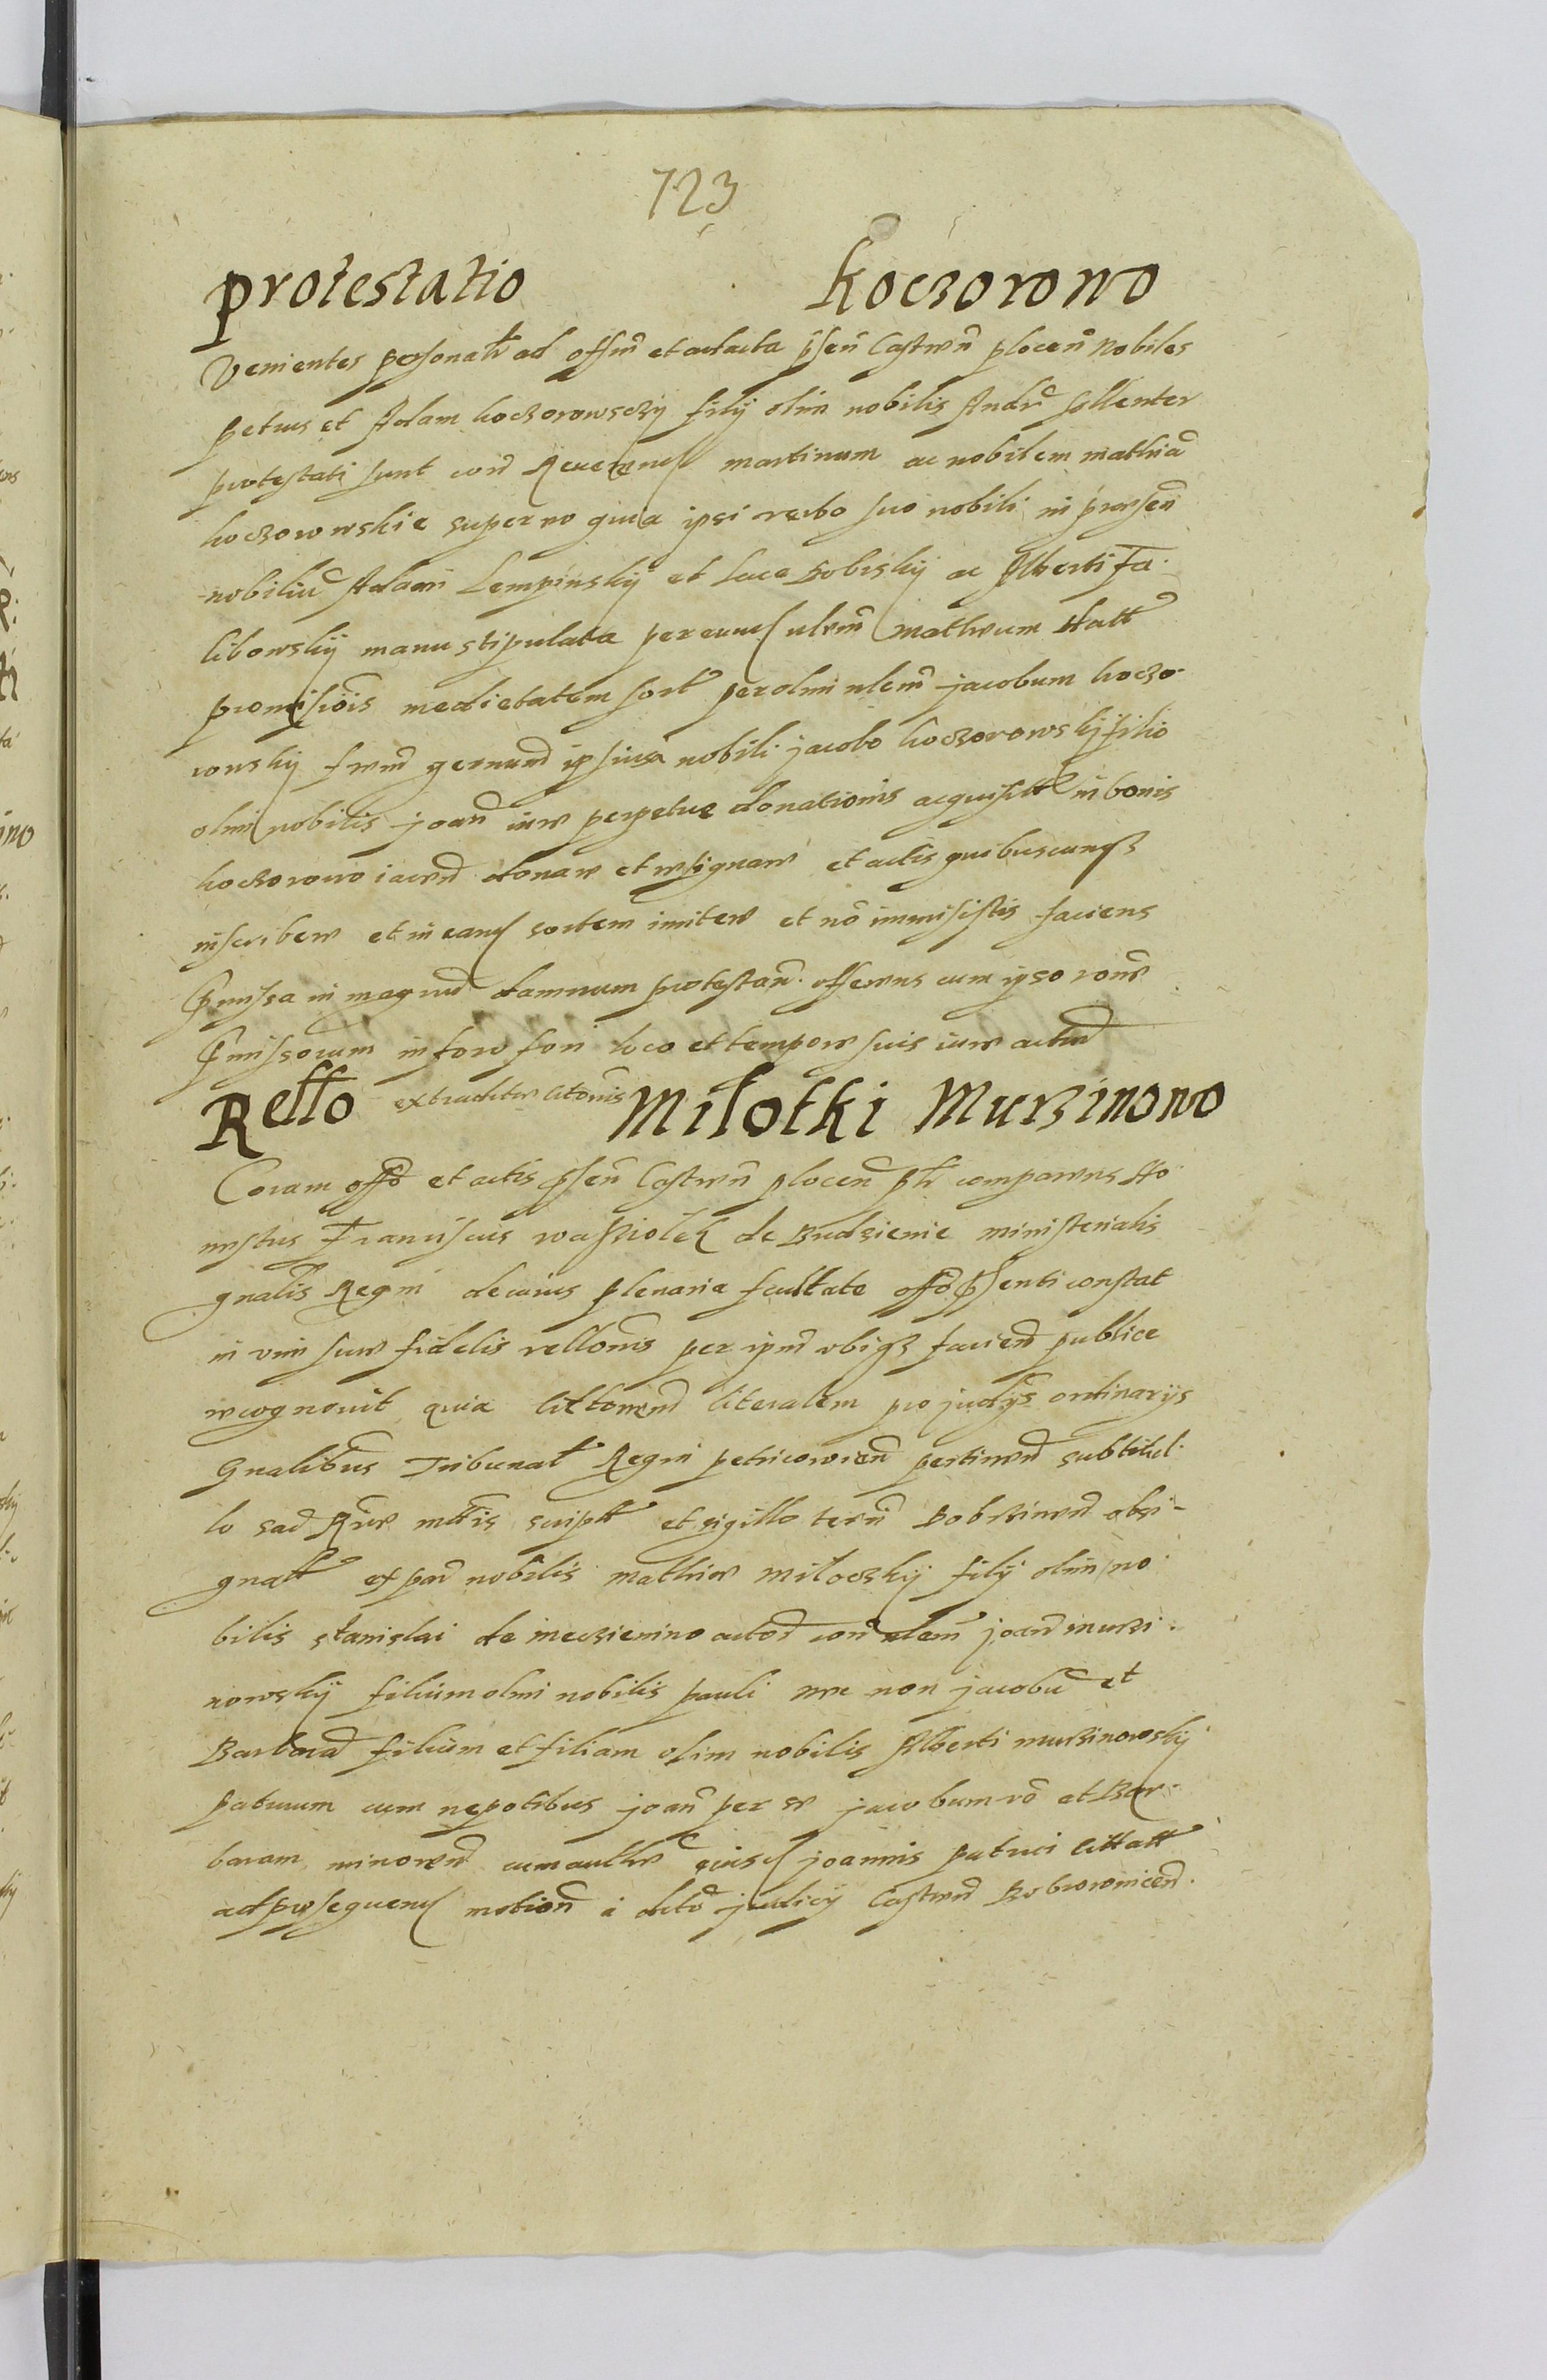 723
protestatio koczorowo
Venientes personalr ad offm et ad acta psen Castren plocen Nobiles
petrus et Adam koczorowsczÿ filÿ olim nobilis Andr sollenter
protestati sunt con martinum ac nobilem mathia
koczorowskie super eo quia ipsi verbo suo nobili in presen
nobiliu Adami Lempinskÿ et Luce Bobiskÿ ac Alberti Fa-
libowskÿ manu stipulata per eund matheum
promisiois medietatem sort per olim nlem jacobum koczo-
rowskÿ frem germanu nobili jacobo koczorowskÿ filio
olim nobilis joan iure perpetue donationis acquisitt in bonis
koczorowo iacen donare et resignare et actis quibuscunqz
inscribere et in eand sortem et no immisistis faciens
pmissa in magnu damnum protestan. offerens cum ipso rone
pmissorum in foro fori loco et tempore suis iure
Rello Milotki Murzinowo
Coram offo et actis psen Castren plocen plr comparens Ho-
nestus Franciscus wasziolek de Budzienie ministerialis
gnalis Regni de cuius plenaria facultate offo psenti constat
in vim sue fidelis rellonis per ipm ubiqz facien publice
recognovit quia literalem pro judÿs ordinarÿs
Gnalibus Tribunal Regni petricovien pertinen subtitul-
lo sac Rie mttis script et sigillo terri Dobrzinen obsi-
gnatt ex par nobilis mathie milowskÿ filÿ olim no-
bilis stanislai de meczienino actor con nlem joan murzi-
nowskÿ filium olim nobilis pauli nec non jacobu et
Barbara filium et filiam olim nobilis Alberti murzinowskÿ
patruum cum nepotibus joan per se jacobum vo et Bar-
baram minoren cum autte eiusd joannis patrui cittatt
ad prosequend motion a judicÿ Castren Bobrownicen.